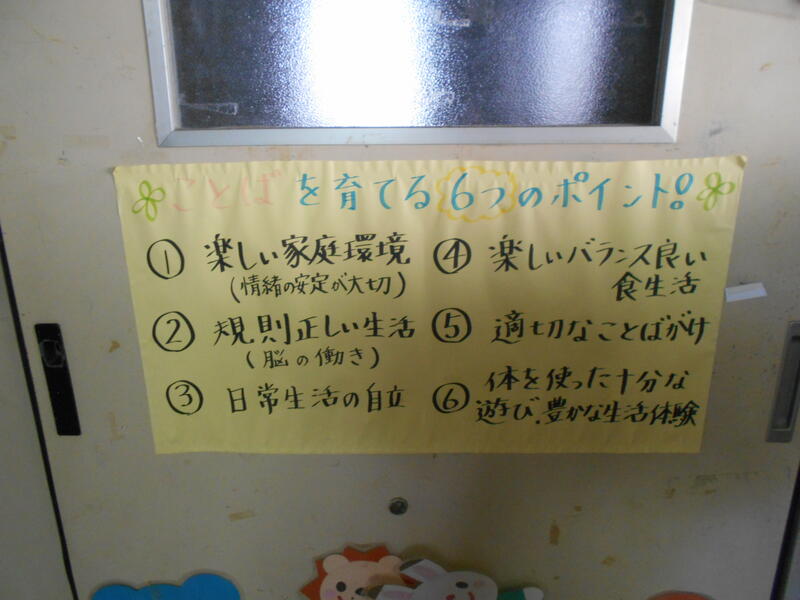 ことばを育てる6つのポイント!
① 楽しい家庭環境
(情緒の安定が大切)
② 規則正しい生活
(脳の働き)
③ 日常生活の自立
④ 楽しいバランス良い
食生活
⑤ 適切なことばがけ
⑥ 体を使った十分な
遊び、豊かな生活体験